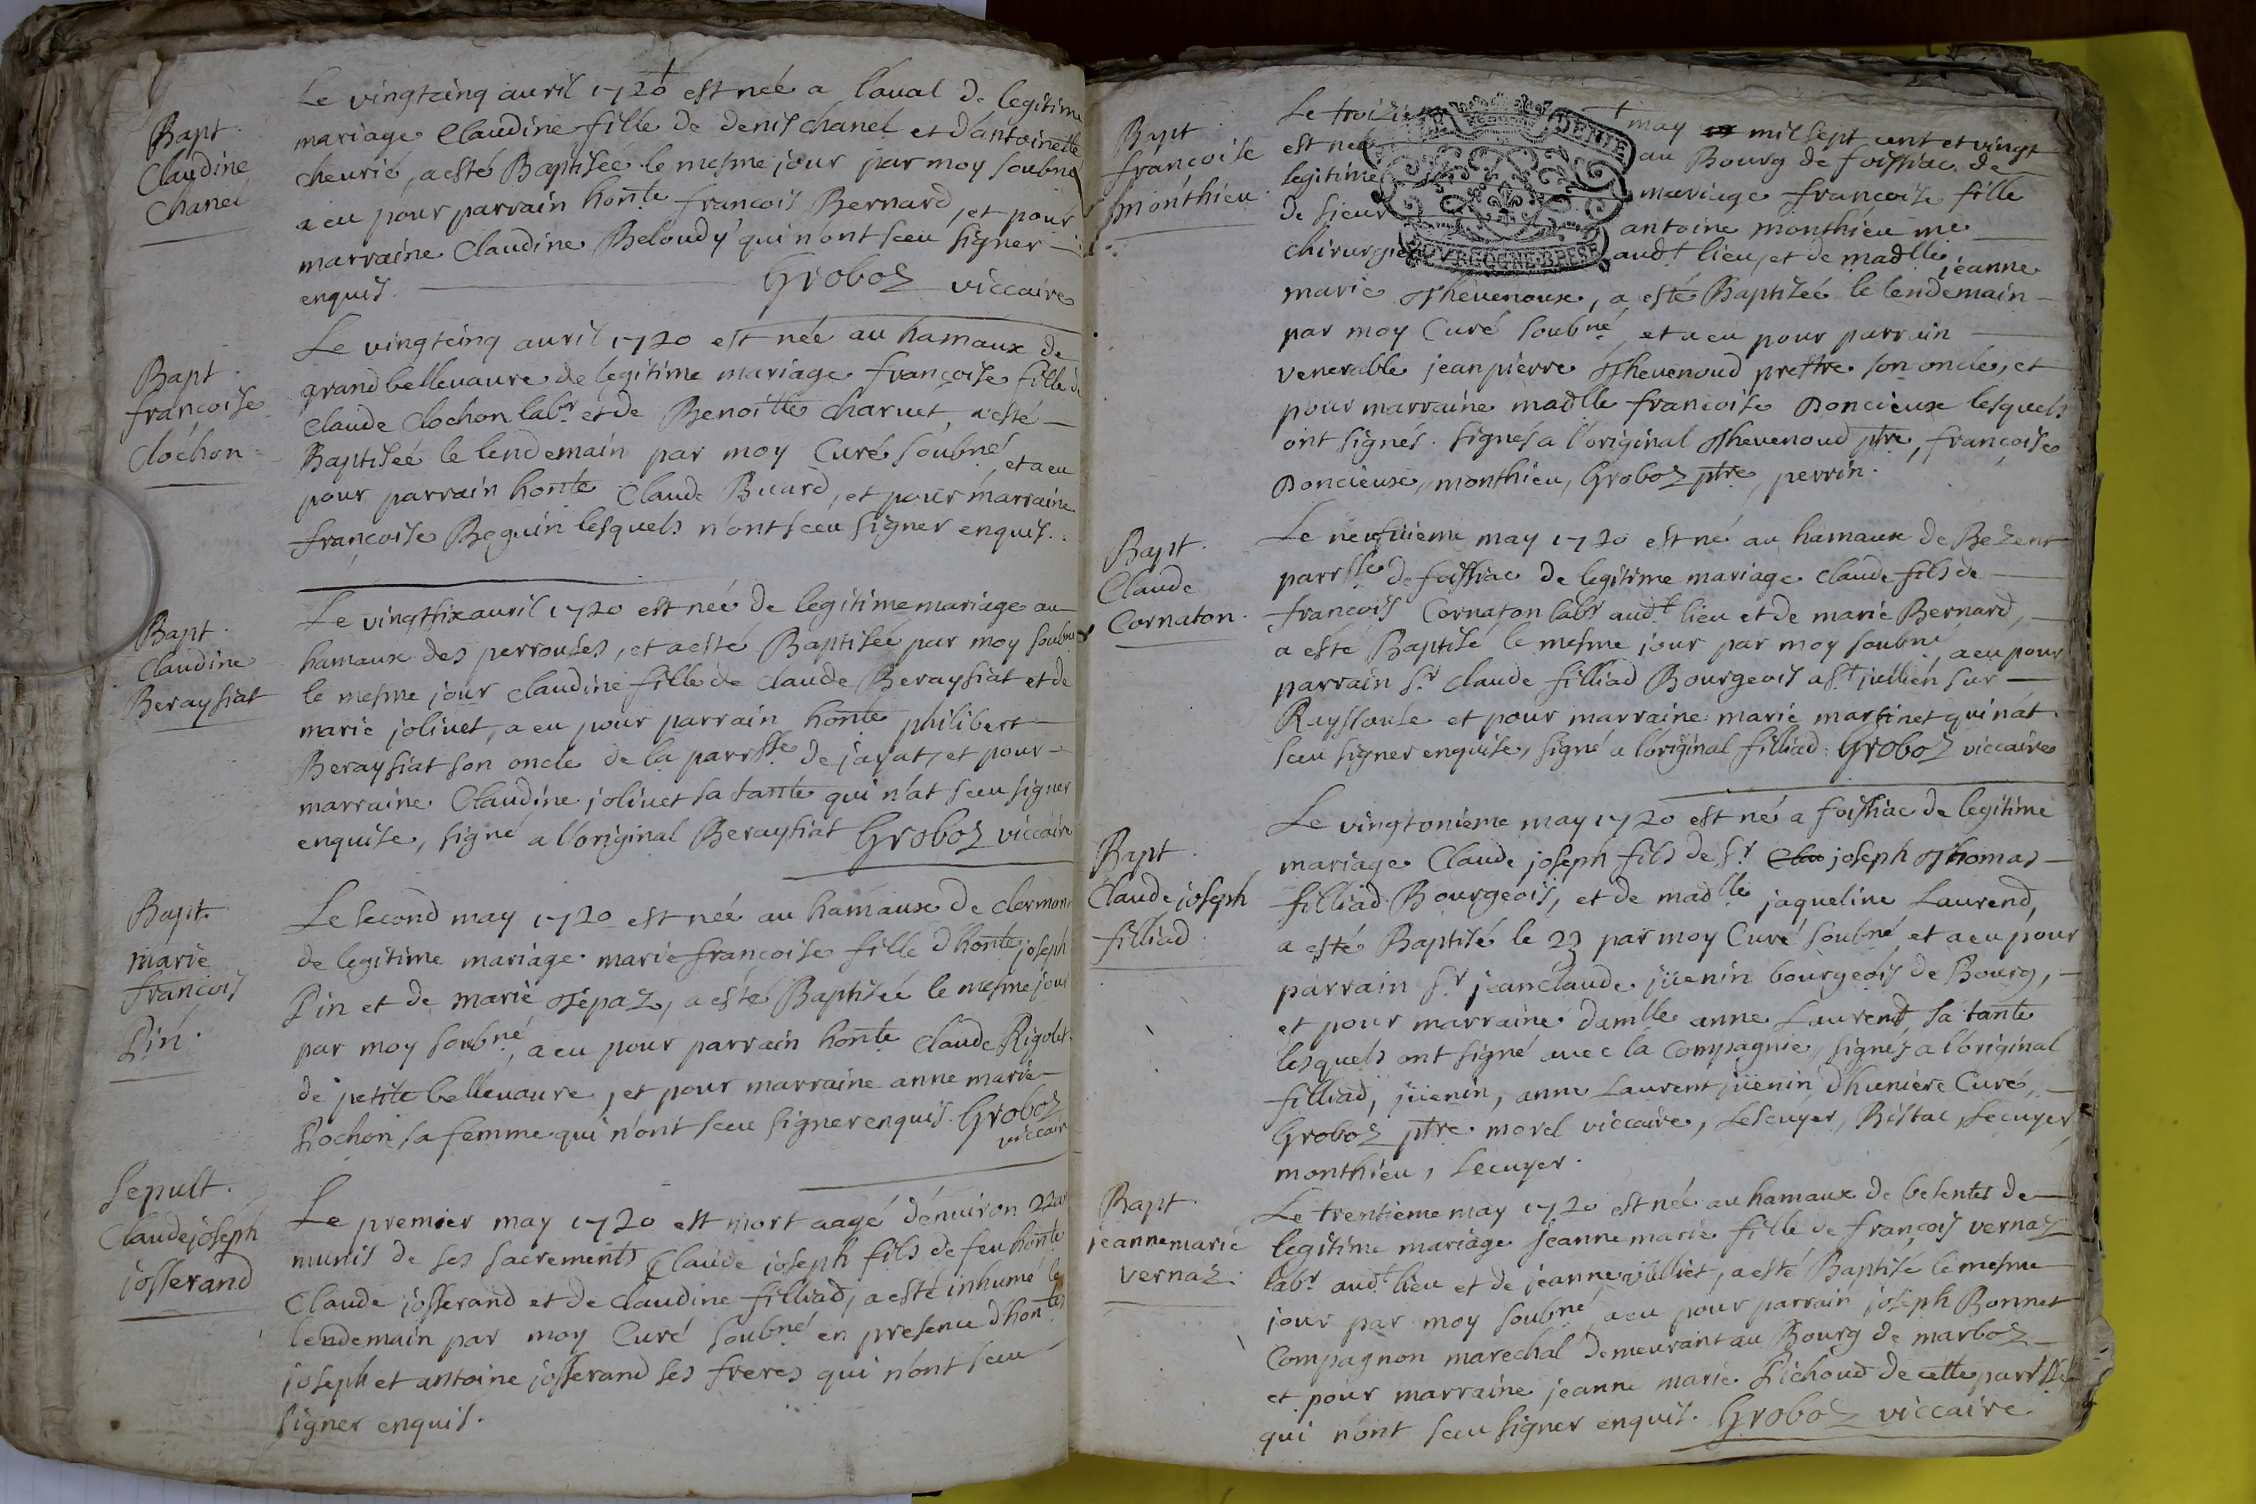 Bapt.
Claudine
Chanel
Le vingtcinq auril 1720 est née a laual de legitime
mariage Claudine fille de denis chanel et d'antoinette
cheurié, a esté Baptisée le mesme jour par moy soubné
a eu pour parrain honte francois Bernard, et pour
marraine Claudine Beloudy qui n'ont sceu signer
enquis. Groboz viccaire
Bapt.
françoise
Clochon
Le vingtcinq auril 1720 est née au hamaux de
grand belleuaure de legitime mariage françoise fille de
Claude Clochon labr et de Benoitte charuet, a esté
Baptisée le lendemain par moy Curé soubné, et a eu
pour parrain honte Claude Buard, et pour marraine
françoise Beguin lesquels n'ont sceu signer enquis.
Bapt.
Claudine
Beraysiat
Le vingtsix auril 1720 est née de legitime mariage au
hamaux des perrouses, et a esté Baptisée par moy soubné
le mesme jour claudine fille de Claude Beraysiat et de
marie joliuet, a eu pour parrain honte philibert
Beraysiat son oncle de la parrsse de jayat, et pour
marraine Claudine joliuet sa tante qui n'at sceu signer
enquise, signé a l'original Beraysiat Groboz viccaire
Bapt.
marie
francois
Pin.
Le second may 1720 est née au hamaux de clermont
de legitime mariage marie françoise fille d'honte joseph
Pin et de marie Tépaz, a esté Baptisée le mesme jour
par moy soubné, a eu pour parrain honte Claude Rigolet
de petite belleuaure, et pour marraine anne marie
Pochon sa femme qui n'ont sceu signer enquis. Groboz
viccaire
Sepult.
Claude joseph
josserand
Le premier may 1720 est mort aagé d'enuiron 22 ans
munis de ses sacrements Claude joseph fils de feu honte
Claude josserand et de claudine filliad, a esté inhumé le
lendemain par moy Curé soubné en presence d'hontes
joseph et antoine josserand ses freres qui n'ont sceu
signer enquis.
Bapt.
françoise
monthieu.
Le troizie may mil sept cent et vingt
est née au Bourg de foissiac de
legitime mariage françoise fille
de sieur antoine monthieu me
chirurgien audt lieu, et de madlle jeanne
BOVRGOGNE BRESSE
marie Theuenoux, a esté Baptisée le lendemain
par moy Curé soubné, et a eu pour parrain
venerable jean pierre Theuenoud prettre son oncle, et
pour marraine madlle françoise Doncieux lesquels
ont signés. signés a l'original Theuenoud ptre, françoise
Doncieux, monthieu, Groboz ptre, perrin.
Bapt.
Claude
Cornaton.
Le neufuieme may 1720 est né au hamaux de Bezent
parrsse de foissiac de legitime mariage claude fils de
françois Cornaton labr audt lieu et de marie Bernard,
a esté Baptisé le mesme jour par moy soubné a eu pour
parrain sr claude filliad Bourgeois a st jullien sur
Reyssouse et pour marraine marie martinet qui n'at
sceu signer enquise, signé a l'original filliad. Groboz viccaire
Bapt.
Claude joseph
filliad
Le vingtonieme may 1720 est né a foissiac de legitime
mariage Claude joseph fils de sr Clau joseph Thomas
filliad Bourgeois, et de madlle jaqueline Laurend,
a esté Baptisé le 23 par moy Curé soubné et a eu pour
parrain sr jean claude jüenin bourgeois de Bourg,
et pour marraine damlle anne Laurend sa tante
lesquels ont signé auec la compagnie, signés a l'original
filliad, jüenin, anne Laurent jüenin d'huniere Curé,
Groboz ptre. morel viccaire, Lescuyer, Bistac, Lecuyer,
monthieu, Lecuyer.
Bapt.
jeanne marie
vernaz.
Le trentieme may 1720 est née au hamaux de besentes de
legitime mariage jeanne marie fille de françois vernaz
labr audt lieu et de jeanne vulliet, a esté Baptisé le mesme
jour par moy soubné, a eu pour parrain joseph Bonnet
Compagnon marechal demeurant au Bourg de marboz
et pour marraine jeanne marie Pichoud de cette parrsse
qui n'ont sceu signer enquis. Groboz viccaire.